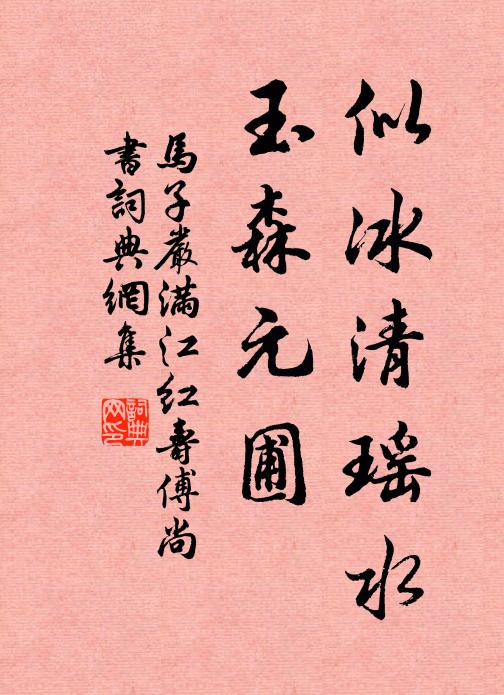 似冰清瑶水
玉森元圃
馬子嚴滿江红壽傅尚
書詞典網集
詞典网印